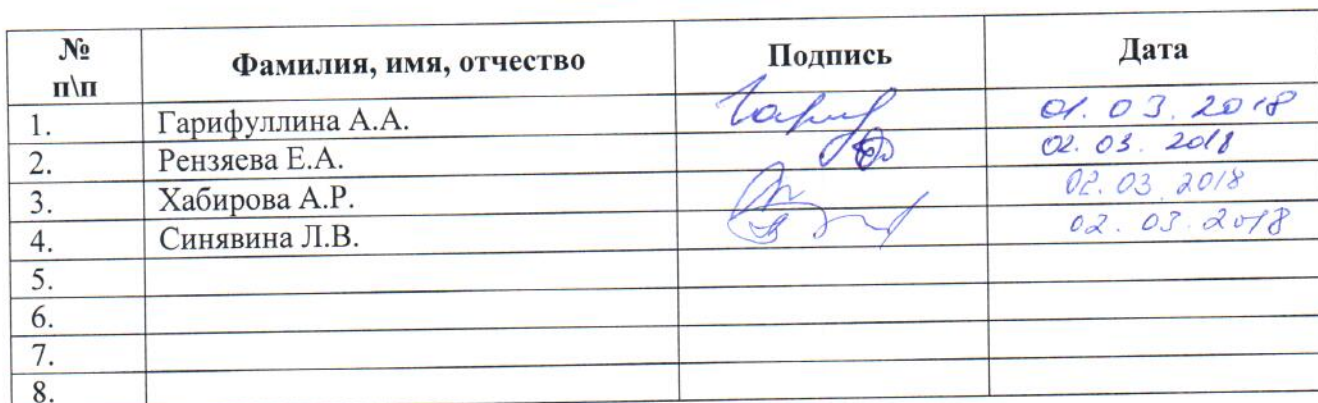 № п\п Фамилия, имя, отчество Подпись Дата
1. Гарифуллина А.А. Гариф 01.03.2018
2. Рензяева Е.А. 02.03.2018
3. Хабирова А.Р. 02.03.2018
4. Синявина Л.В. 02.03.2018
5.
6.
7.
8.